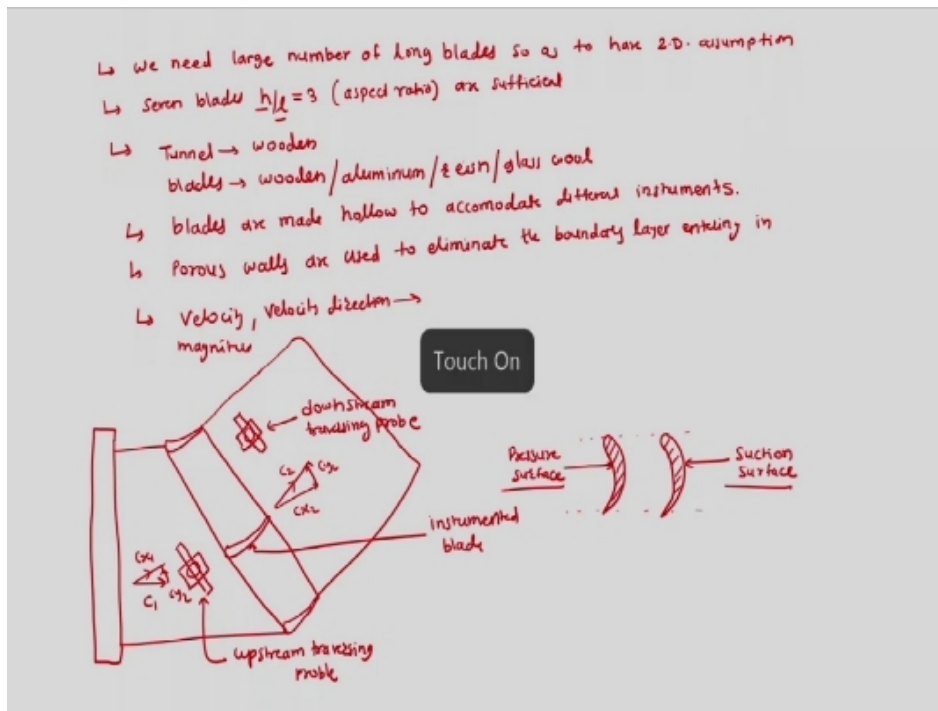 ↳ we need large number of long blades so as to have 2-D. assumption
↳ Seven blades h/l = 3 (aspect ratio) are sufficient
↳ Tunnel → wooden
blades → wooden/aluminum/resin/glass wool
↳ blades are made hollow to accomodate different instuments.
↳ Porous walls are used to eliminate the boundary layer entering in
↳ Velocity, velocity direction →
magnitue
Touch On
downstream
traversing probe
C2 Cy2
Cx2
Pressure
surface
Suction
surface
instrumented
blade
Cx1
C1 Cy2
upstream traversing
proble